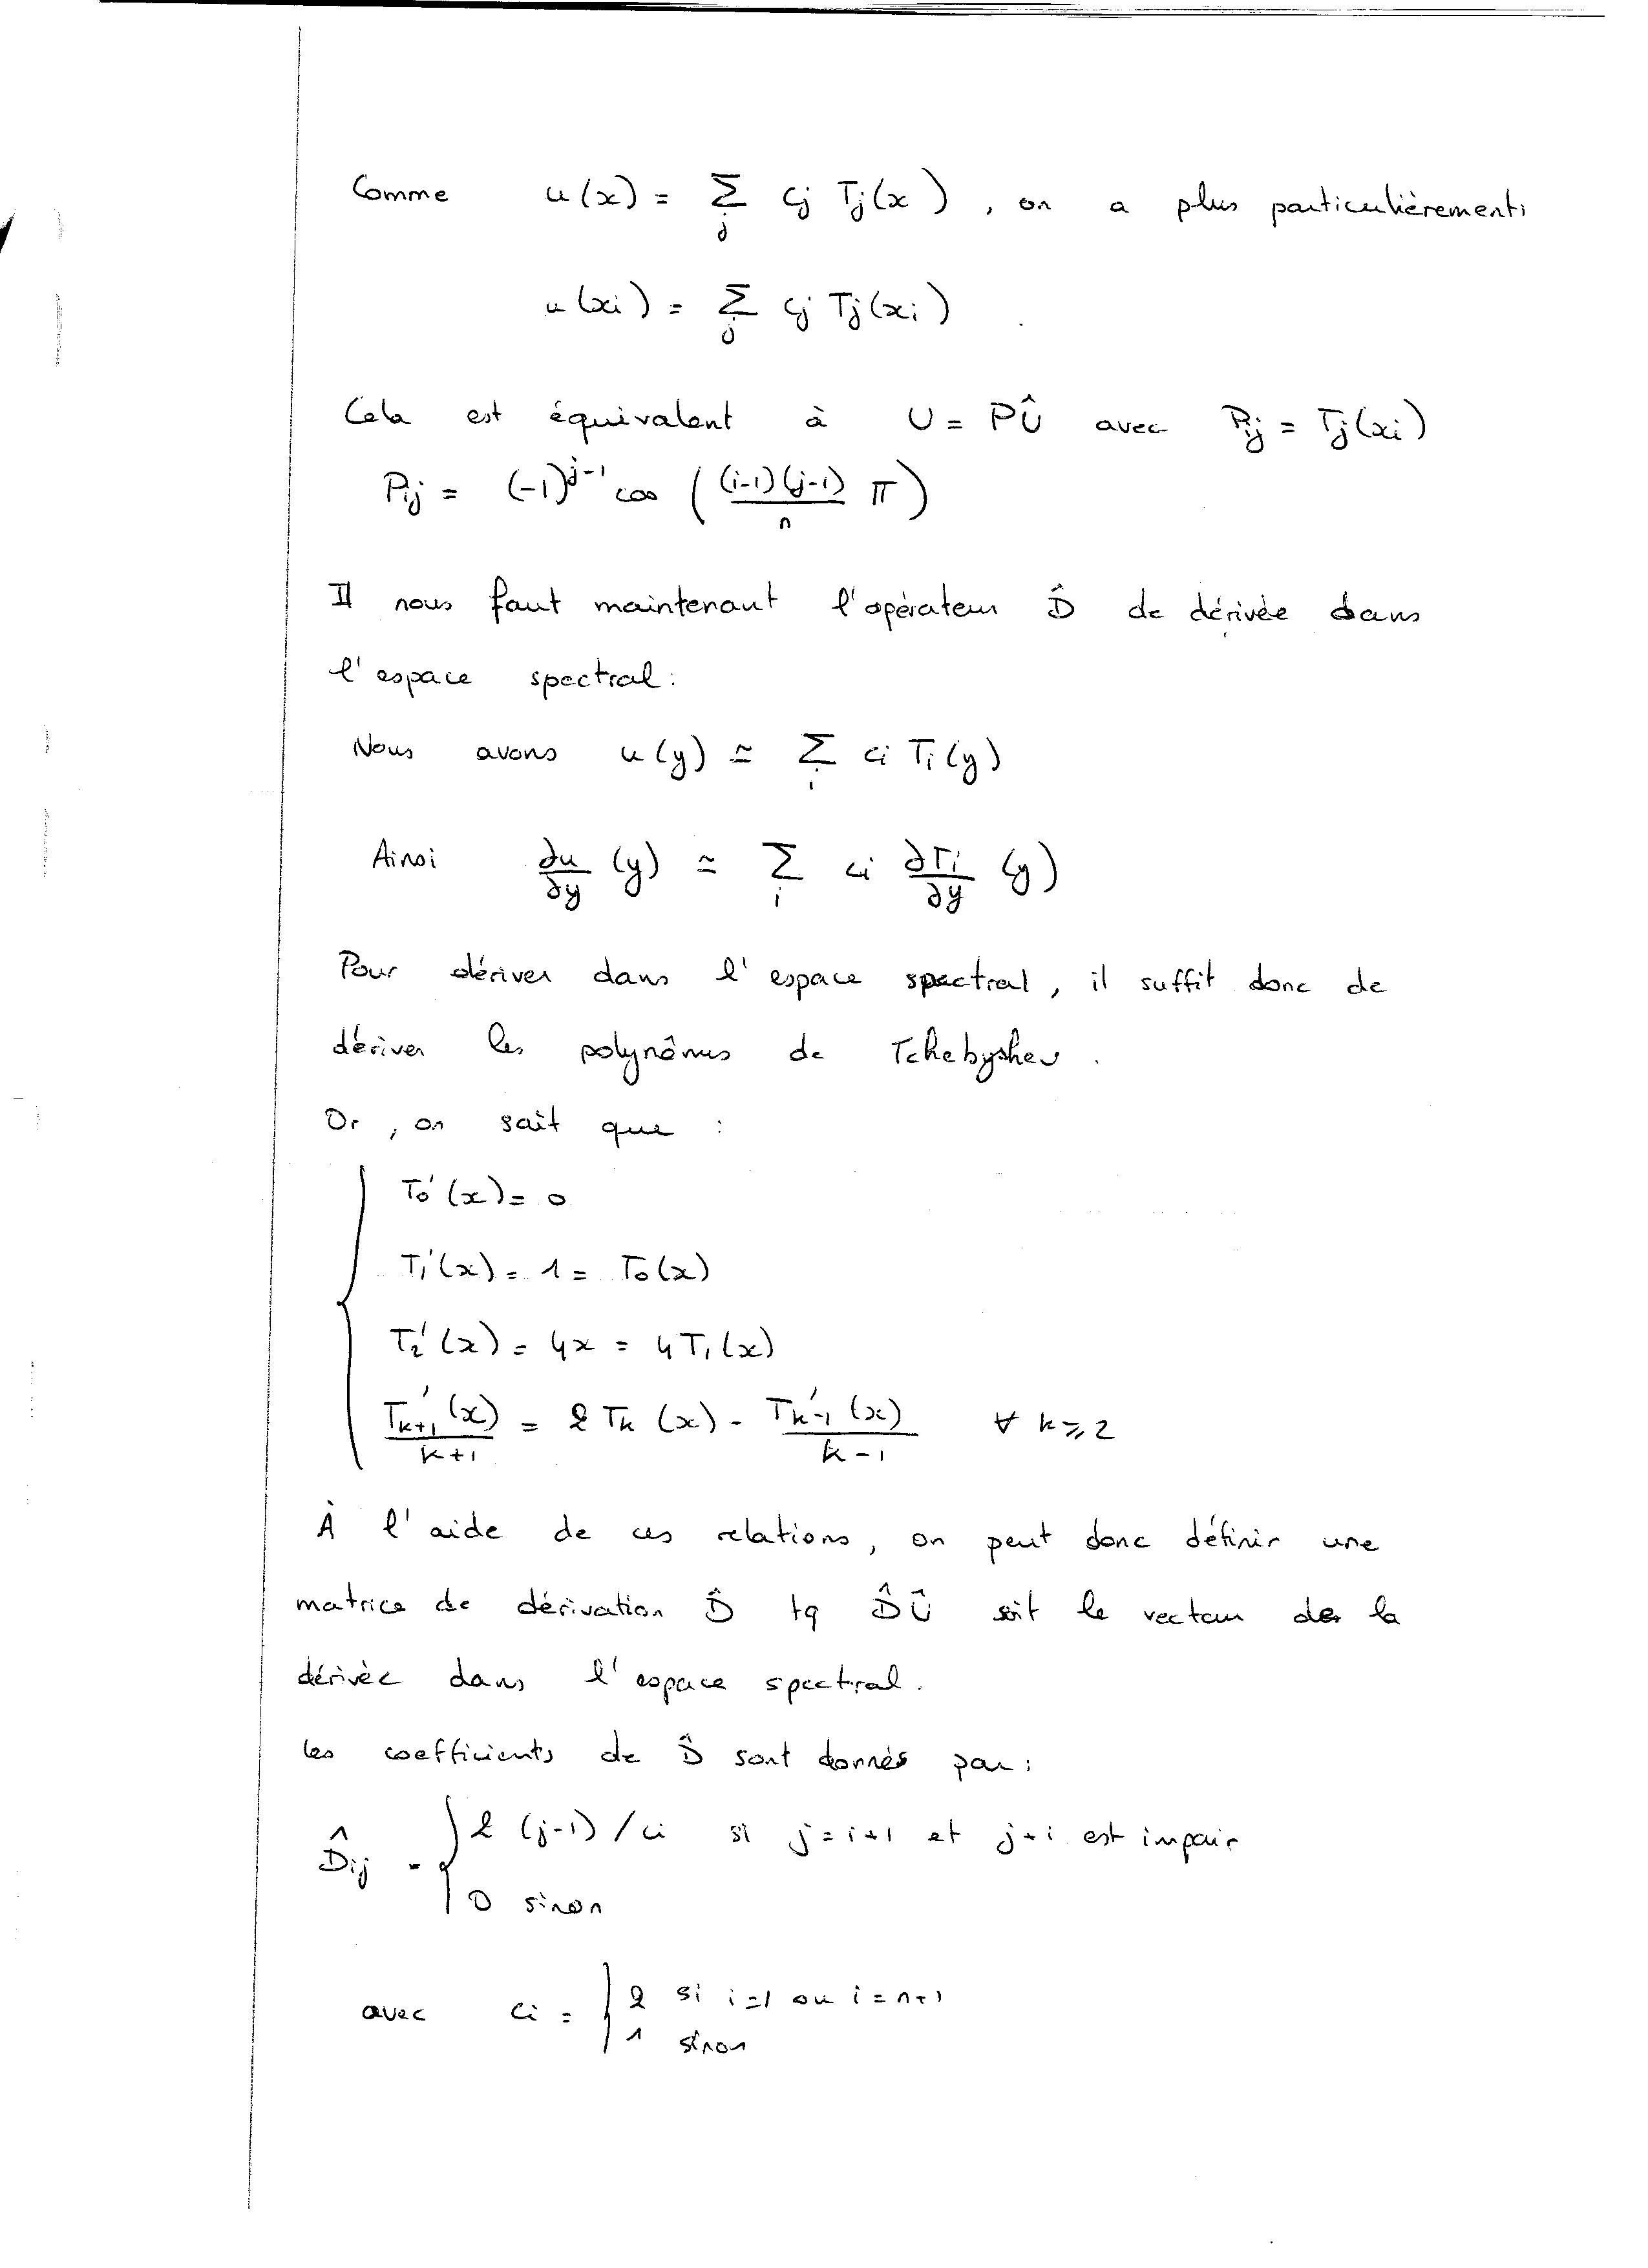 Comme u(x) = Σ_j cj Tj(x), on a plus particulièrement:
u(xi) = Σ_j cj Tj(xi)
Cela est équivalent à U = PÛ avec Pij = Tj(xi)
Pij = (-1)^{j-1} cos ( (i-1)(j-1)/n π )
Il nous faut maintenant l'opérateur D̂ de dérivée dans
l'espace spectral:
Nous avons u(y) ≃ Σ_i ci Ti(y)
Ainsi ∂u/∂y (y) ≃ Σ_i ci ∂Ti/∂y (y)
Pour dériver dans l'espace spectral, il suffit donc de
dériver les polynômes de Tchebyshev.
Or, on sait que :
T0'(x) = 0
T1'(x) = 1 = T0(x)
T2'(x) = 4x = 4T1(x)
T'k+1(x)/(k+1) = 2Tk(x) - T'k-1(x)/(k-1) ∀ k ⩾ 2
À l'aide de ces relations, on peut donc définir une
matrice de dérivation D̂ tq D̂Û soit le vecteur de la
dérivée dans l'espace spectral.
les coefficients de D̂ sont donnés par:
D̂ij = { 2 (j-1) / ci si j = i+1 et j+i est impair
0 sinon
avec ci = { 2 si i=1 ou i=n+1
1 sinon